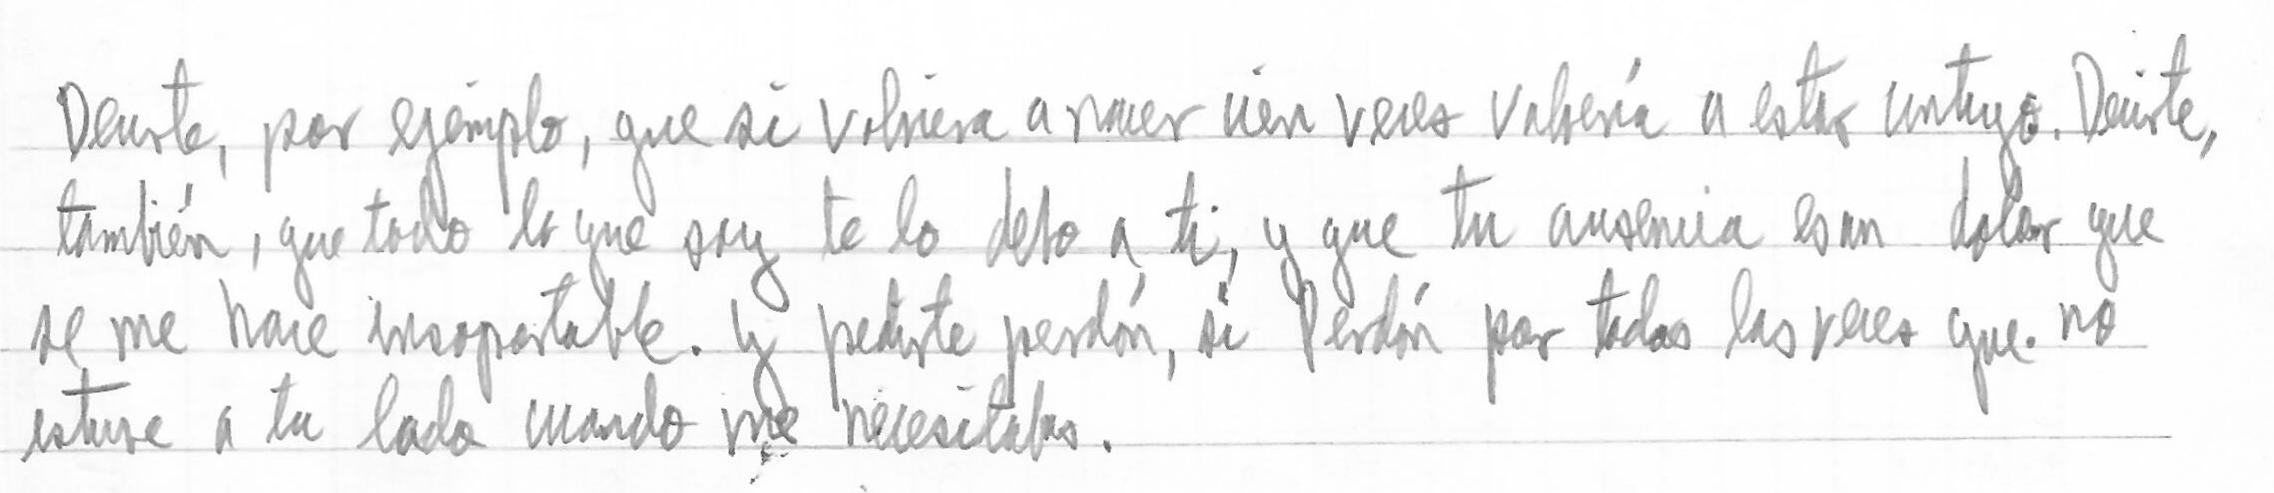 Decirte, por ejemplo, que si volviera a nacer cien veces volvería a estar contigo. Decirte,
también, que todo lo que soy te lo debo a ti, y que tu ausencia es un dolor que
se me hace insoportable. Y pedirte perdón, si Perdón por todas las veces que. no
estuve a tu lado cuando me necesitabas.